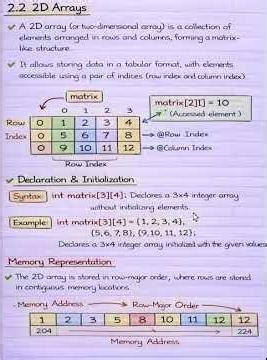 2.2 2D Arrays
✓ A 2D array (or two-dimensional array) is a collection of
elements arranged in rows and columns, forming a matrix-
like structure.
✓ It allows storing data in a tabular format, with elements
accessible using a pair of indices (row index and column index)
matrix
matrix[2][1] = 10
(Accessed element)
0 1 2 3
Row 0 1 2 3 4
Index 0 5 6 7 8 → @Row Index
0 9 10 11 12 → @Column Index
Row Index
✓ Declaration & Initialization
Syntax: int matrix[3][4]; Declares a 3×4 integer array
without initializing elements.
Example: int matrix[3][4] = {1, 2, 3, 4},
{5, 6, 7, 8}, {9, 10, 11, 12};
Declares a 3×4 integer array initialized with the given values
Memory Representation
✓ The 2D array is stored in row-major order, where rows are stored
in contiguous memory locations.
Memory Address → Row-Major Order
1 2 3 5 8 10 11 12 12
204 224
Memory Address